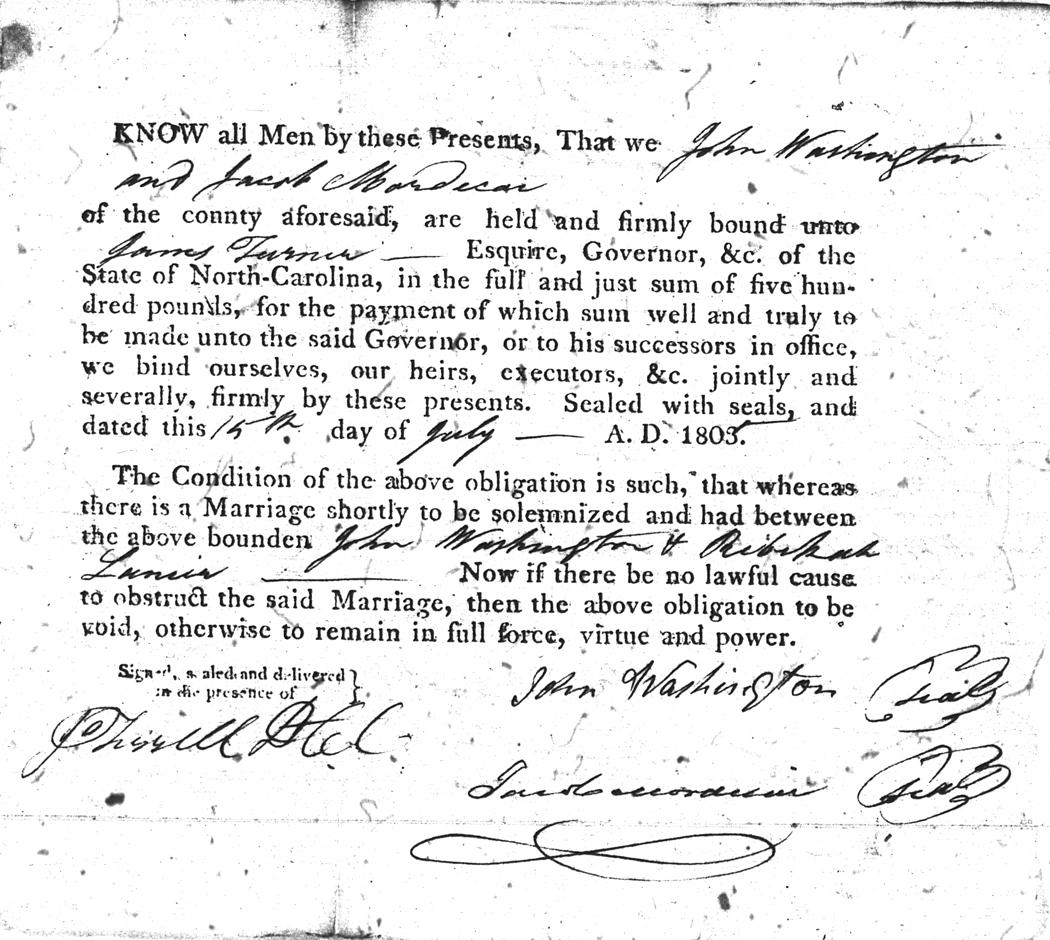 KNOW all Men by these Presents, That we John Washington
and Jacob Mordecai
of the connty aforesaid, are held and firmly bound unto
James Turner — Esquire, Governor, &c. of the
State of North-Carolina, in the full and just sum of five hun-
dred pounds, for the payment of which sum well and truly to
be made unto the said Governor, or to his successors in office,
we bind ourselves, our heirs, executors, &c. jointly and
severally, firmly by these presents. Sealed with seals, and
dated this 15th. day of July — A. D. 1803.
The Condition of the above obligation is such, that whereas
there is a Marriage shortly to be solemnized and had between
the above bounden John Washington & Rebekah
Lanier — Now if there be no lawful cause
to obstruct the said Marriage, then the above obligation to be
void, otherwise to remain in full force, virtue and power.
Signed, sealed and delivered }
in the presence of
John Washington Seal
Jacob Mordecai Seal